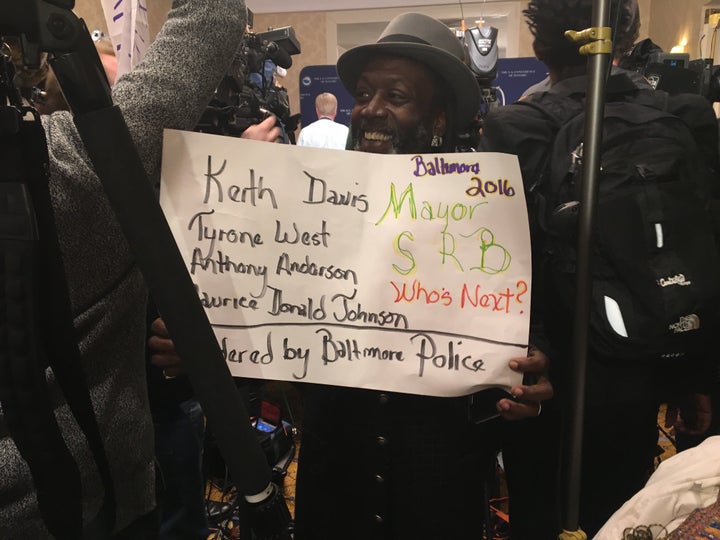 Keith Davis
Tyrone West
Anthony Anderson
Maurice Donald Johnson
dered by Baltimore Police
Baltimore
2016
Mayor
S R B
Who's Next?
THE U.S. CONFERENCE
OF MAYORS
THE
NORTH
FACE